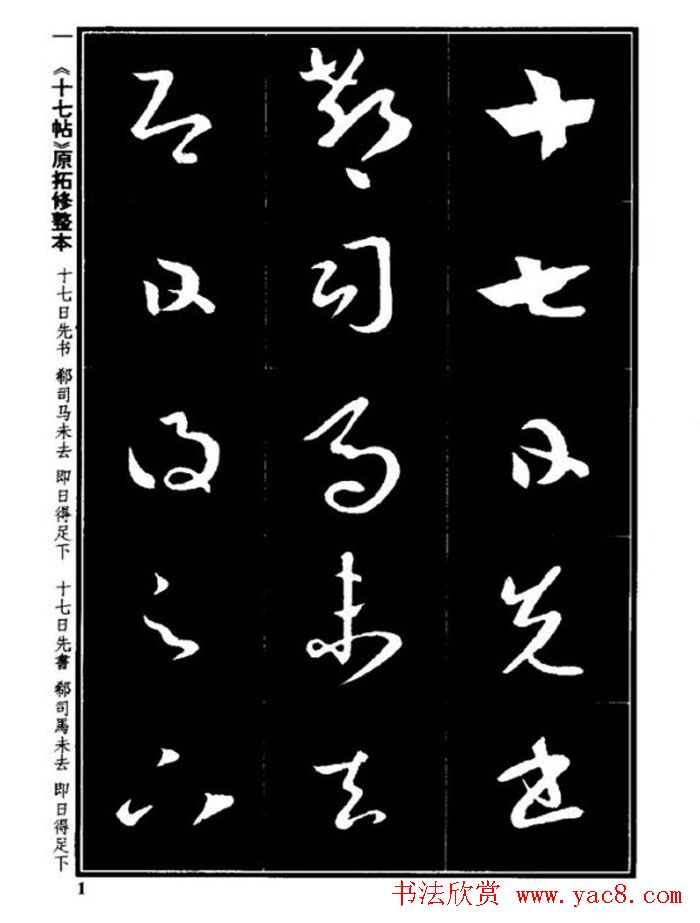 十七日先書
郗司馬未去
即日得足下
一
《十七帖》原拓修整本
十七日先书 郗司马未去 即日得足下
十七日先書 郗司馬未去 即日得足下
1
书法欣赏 www.yac8.com